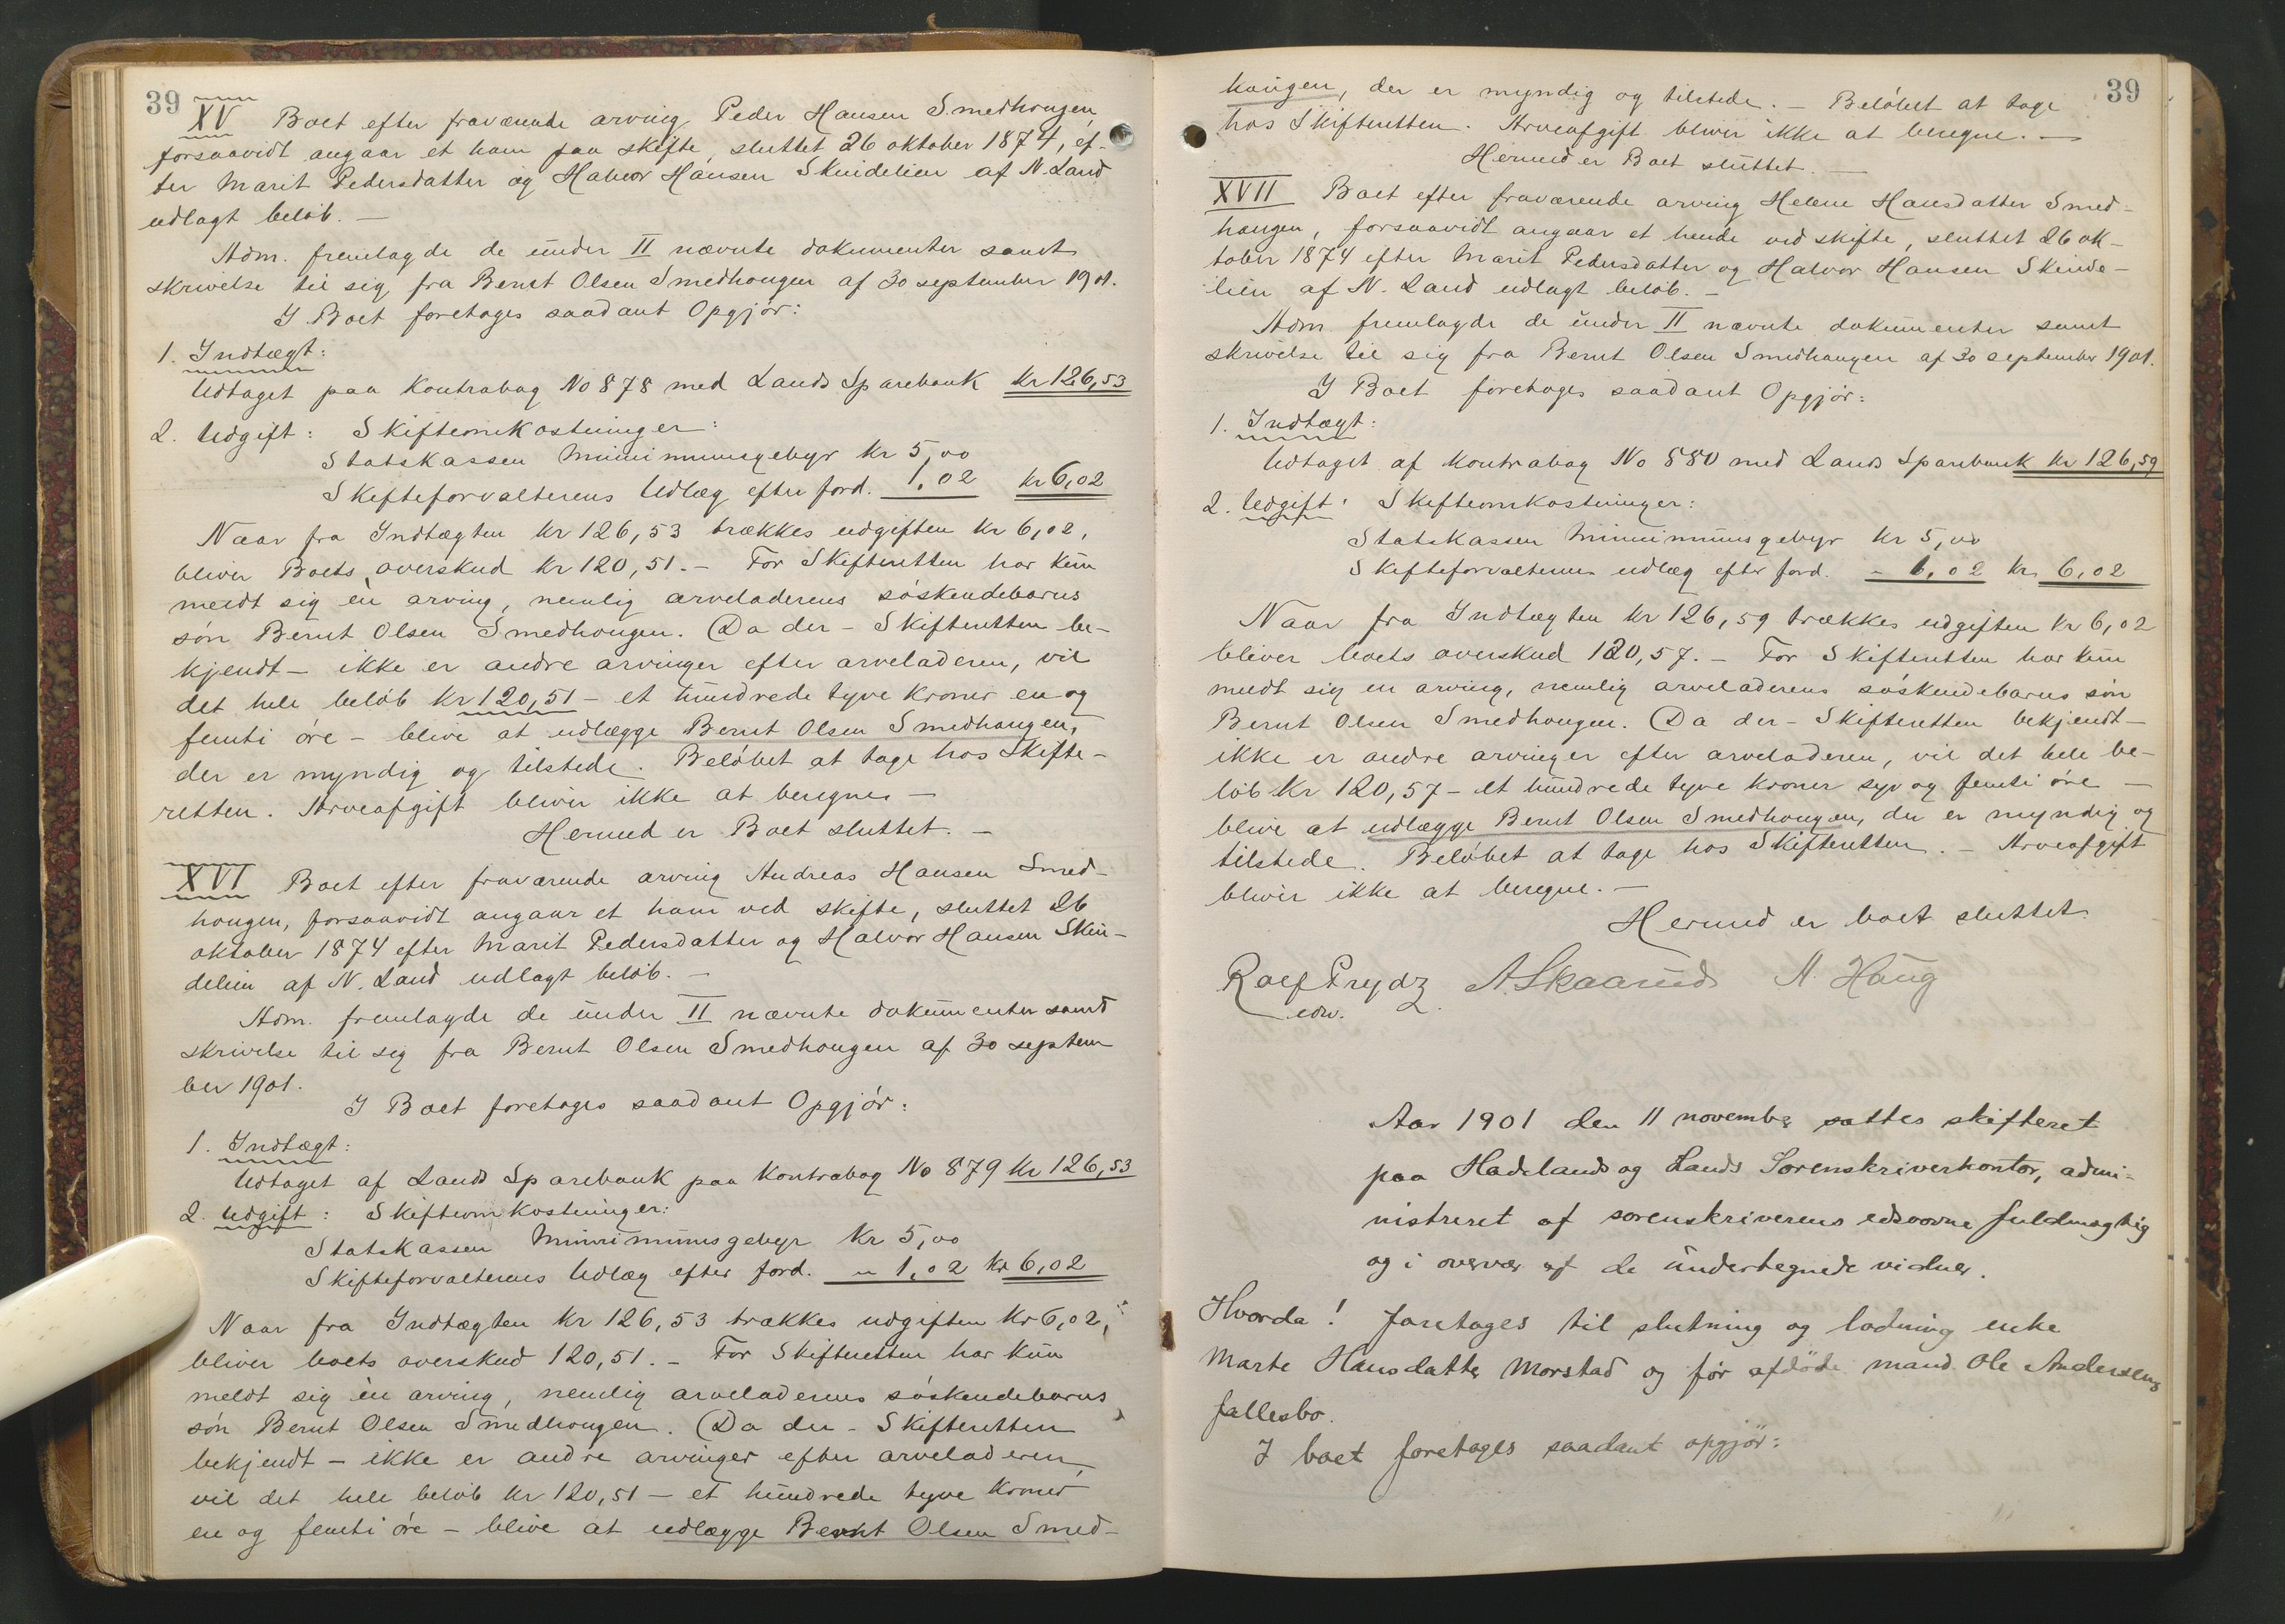 39
XV Boet efter fraværende arving Peder Hansen Smedhaugen,
forsaavidt angaar et ham paa skifte, sluttet 26 oktober 1874, ef-
ter Marit Pedersdatter og Halvor Hansen Skindelien af N. Land
udlagt beløb. —
Adm. fremlagde de under II nævnte dokumenter samt
skrivelse til sig fra Bernt Olsen Smedhaugen af 30 september 1901.
I Boet foretages saadant Opgjør:
1. Indtægt:
Udtaget paa Kontrabog No 878 med Lands Sparebank kr 126,53
2. Udgift: Skifteomkostninger:
Statskassen Minimumsgebyr kr 5,00
Skifteforvalterens Udlæg efter ford. 1,02 kr 6,02
Naar fra Indtægten kr 126,53 trækkes udgiften kr 6,02,
bliver Boets overskud kr 120,51. — For Skifteretten har kun
meldt sig en arving, nemlig arveladerens søskendebarns
søn Bernt Olsen Smedhaugen. Da der — Skifteretten be-
kjendt — ikke er andre arvinger efter arveladeren, vil
det hele beløb kr 120,51 — et hundrede tyve kroner en og
femti øre — blive at udlægge Bernt Olsen Smedhaugen,
der er myndig og tilstede. Beløbet at tage hos Skifte-
retten. Arveafgift bliver ikke at beregne —
Hermed er Boet sluttet. —
XVI Boet efter fraværende arving Andreas Hansen Smed-
hougen, forsaavidt angaar et ham ved skifte, sluttet 26
oktober 1874 efter Marit Pedersdatter og Halvor Hansen Skin-
delien af N. Land udlagt beløb. —
Adm. fremlagde de under II nævnte dokumenter samt
skrivelse til sig fra Bernt Olsen Smedhougen af 30 septem
ber 1901.
I Boet foretages saadant Opgjør:
1. Indtægt:
Udtaget af Lands Sparebank paa Kontrabog No 879 kr 126,53
2. Udgift: Skifteomkostninger:
Statskassen Minimumsgebyr kr 5,00
Skifteforvalterens Udlæg efter ford. " 1,02 kr 6,02
Naar fra Indtægten kr 126,53 trækkes udgiften kr 6,02,
bliver boets overskud 120,51. — For Skifteretten har kun
meldt sig én arving, nemlig arveladerens søskendebarns
søn Bernt Olsen Smedhougen. Da der — Skifteretten
bekjendt — ikke er andre arvinger efter arveladeren,
vil det hele beløb kr 120,51 — et hundrede tyve kroner
en og femti øre — blive at udlægge Bernt Olsen Smed-
39
haugen, der er myndig og tilstede. — Beløbet at tage
hos Skifteretten. Arveafgift bliver ikke at beregne. —
Hermed er Boet sluttet. —
XVII Boet efter fraværende arving Helene Hansdatter Smed-
haugen, forsaavidt angaar et hende ved skifte, sluttet 26 ok-
tober 1874 efter Marit Pedersdatter og Halvor Hansen Skinde-
lien af N. Land udlagt beløb. —
Adm. fremlagde de under II nævnte dokumenter samt
skrivelse til sig fra Bernt Olsen Smedhaugen af 30 september 1901.
I Boet foretages saadant Opgjør:
1. Indtægt:
Udtaget af Kontrabog No 880 med Lands Sparebank kr 126,59
2. Udgift: Skifteomkostninger:
Statskassen Minimumsgebyr kr 5,00
Skifteforvalterens udlæg efter ford. " 1,02 kr 6,02
Naar fra Indtægten kr 126,59 trækkes udgiften kr 6,02
bliver boets overskud 120,57. — For Skifteretten har kun
meldt sig en arving, nemlig arveladerens søskendebarns søn
Bernt Olsen Smedhougen. Da der — Skifteretten bekjendt —
ikke er andre arvinger efter arveladeren, vil det hele be-
løb kr 120,57 — et hundrede tyve kroner syv og femti øre —
blive at udlægge Bernt Olsen Smedhougen, der er myndig og
tilstede. Beløbet at tage hos Skifteretten. — Arveafgift
bliver ikke at beregne. —
Hermed er boet sluttet.
Rolf Prydz A. Skaarud A. Haug
edsv.
Aar 1901 den 11 novembr sattes skifteret
paa Hadelands og Lands Sorenskriverkontor, admi-
nistreret af sorenskriverens edsvorne fuldmægtig
og i overvær af de undertegnede vidner.
Hvorda! foretages til slutning og lodning enke
Marte Hansdatter Morstad og før afdöde mand Ole Andersens
fællesbo.
I boet foretages saadant opgjør: